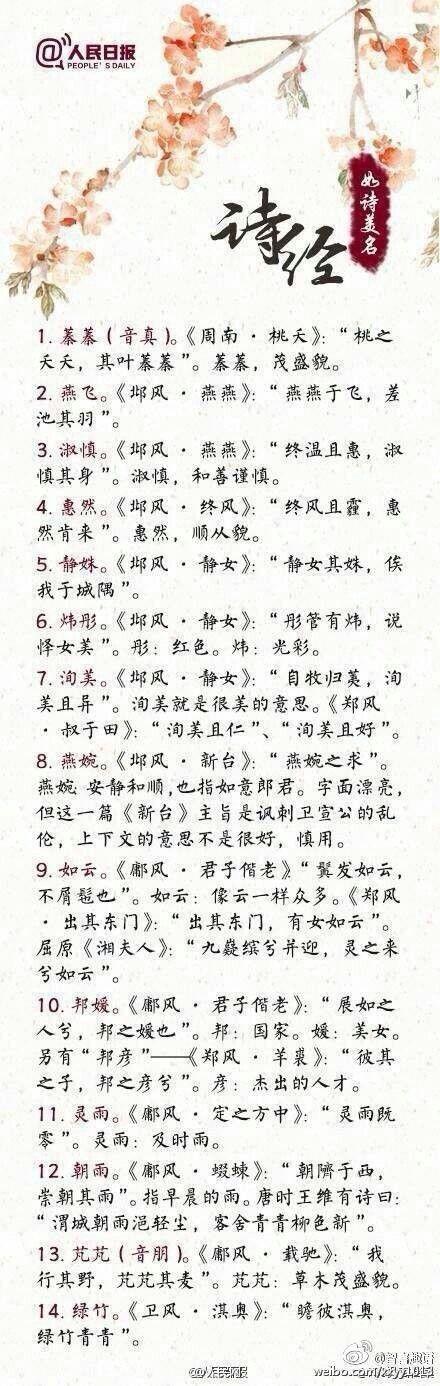 @人民日报
PEOPLE'S DAILY
如诗美名
诗经
1. 蓁蓁（音真）。《周南·桃夭》：“桃之
夭夭，其叶蓁蓁”。蓁蓁，茂盛貌。
2. 燕飞。《邶风·燕燕》：“燕燕于飞，差
池其羽”。
3. 淑慎。《邶风·燕燕》：“终温且惠，淑
慎其身”。淑慎，和善谨慎。
4. 惠然。《邶风·终风》：“终风且霾，惠
然肯来”。惠然，顺从貌。
5. 静姝。《邶风·静女》：“静女其姝，俟
我于城隅”。
6. 炜彤。《邶风·静女》：“彤管有炜，说
怿女美”。彤：红色。炜：光彩。
7. 洵美。《邶风·静女》：“自牧归荑，洵
美且异”。洵美就是很美的意思。《郑风
·叔于田》：“洵美且仁”、“洵美且好”。
8. 燕婉。《邶风·新台》：“燕婉之求”。
燕婉 安静和顺,也指如意郎君。字面漂亮，
但这一篇《新台》主旨是讽刺卫宣公的乱
伦，上下文的意思不是很好，慎用。
9. 如云。《鄘风·君子偕老》“鬒发如云，
不屑髢也”。如云：像云一样众多。《郑风
·出其东门》：“出其东门，有女如云”。
屈原《湘夫人》：“九嶷缤兮并迎，灵之来
兮如云”。
10. 邦媛。《鄘风·君子偕老》：“展如之
人兮，邦之媛也”。邦：国家。媛：美女。
另有“邦彦”——《郑风·羊裘》：“彼其
之子，邦之彦兮”。彦：杰出的人才。
11. 灵雨。《鄘风·定之方中》：“灵雨既
零”。灵雨：及时雨。
12. 朝雨。《鄘风·蝃蝀》：“朝隮于西，
崇朝其雨”。指早晨的雨。唐时王维有诗曰：
“渭城朝雨浥轻尘，客舍青青柳色新”。
13. 芃芃（音朋）。《鄘风·载驰》：“我
行其野，芃芃其麦”。芃芃：草木茂盛貌。
14. 绿竹。《卫风·淇奥》：“瞻彼淇奥，
绿竹青青”。
@人民日报